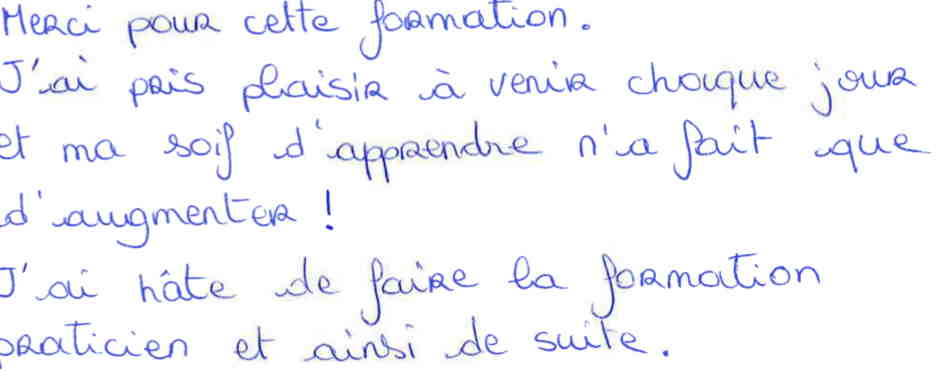 Merci pour cette formation.
J'ai pris plaisir à venir chaque jour
et ma soif d'apprendre n'a fait que
d'augmenter !
J'ai hâte de faire la formation
praticien et ainsi de suite.